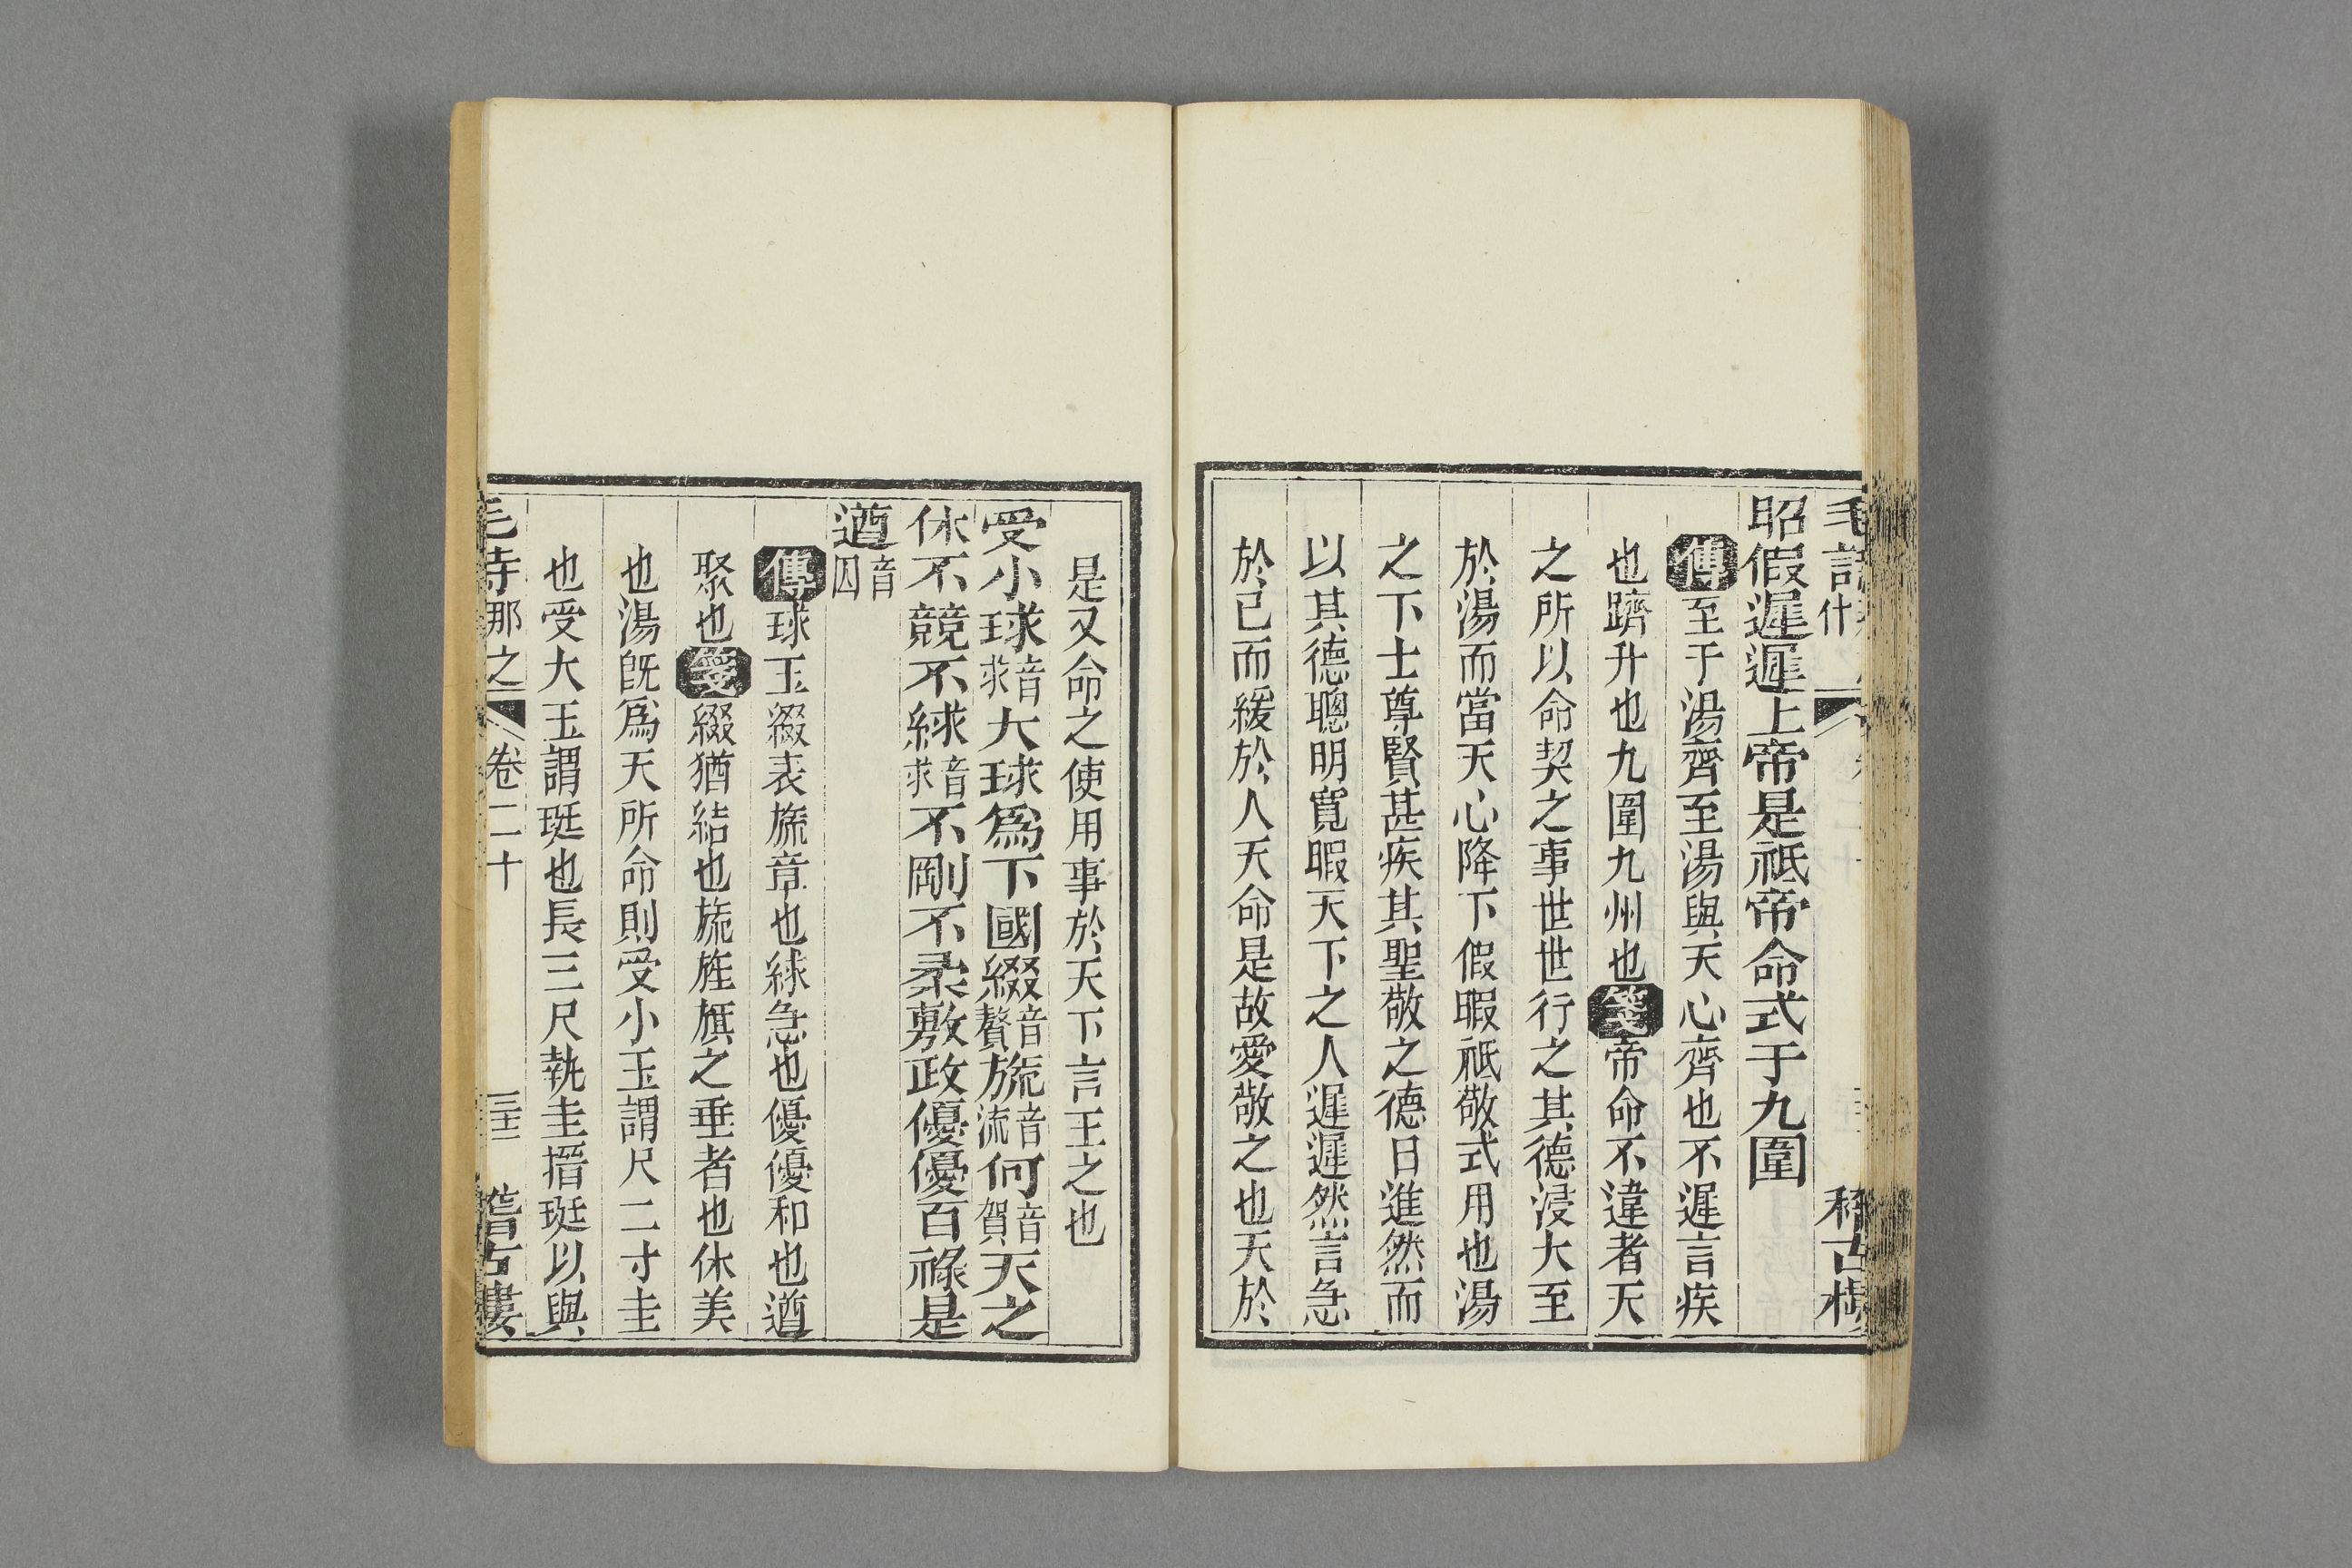 昭假遲遲上帝是祗帝命式于九圍
傳至于湯齊至湯與天心齊也不遲言疾
也躋升也九圍九州也箋帝命不違者天
之所以命契之事世世行之其德浸大至
於湯而當天心降下假暇祗敬式用也湯
之下士尊賢甚疾其聖敬之德日進然而
以其德聰明寬暇天下之人遲遲然言急
於己而緩於人天命是故愛敬之也天於
是又命之使用事於天下言王之也
受小球音求大球爲下國綴音贅旒音流何音賀天之
休不競不絿音求不剛不柔敷政優優百祿是
遒音囚
傳球玉綴表旒章也絿急也優優和也遒
聚也箋綴猶結也旒旌旗之垂者也休美
也湯旣爲天所命則受小玉謂尺二寸圭
也受大玉謂珽也長三尺執圭搢珽以與
毛詩那之 卷二十 三十二 稽古樓